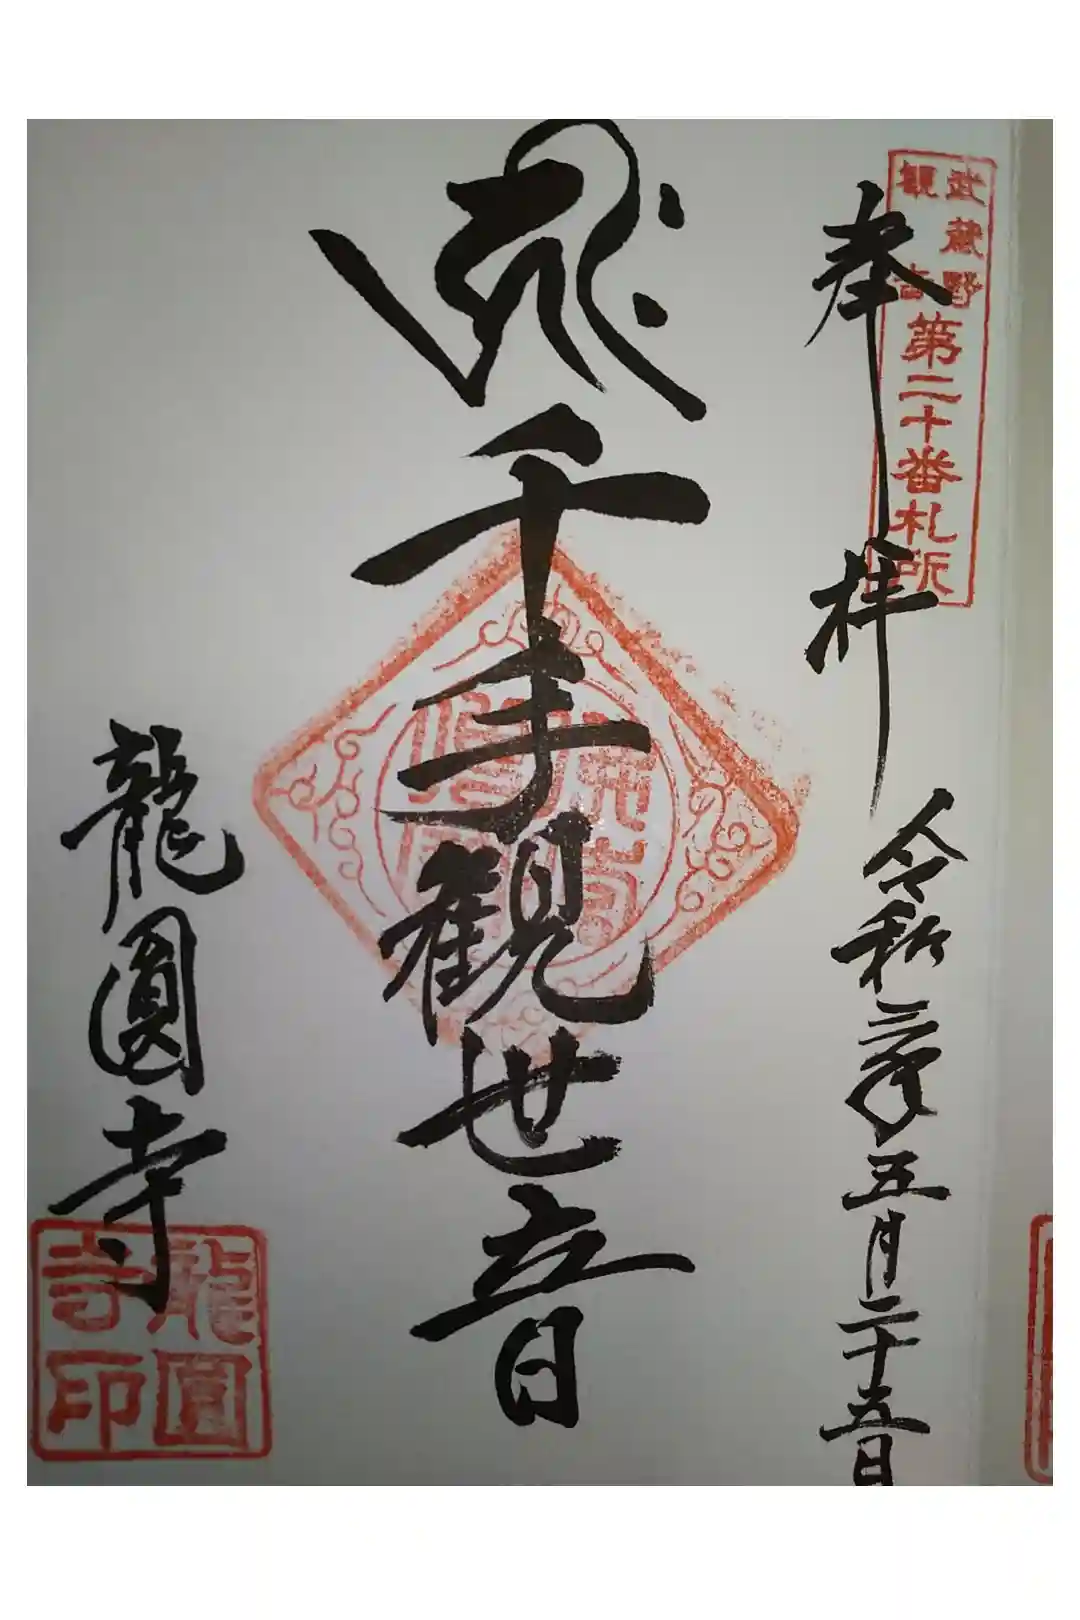 武蔵野
観音
第二十番札所
奉拝
令和三年五月二十五日
千手観世音
龍圓寺
龍圓
寺印